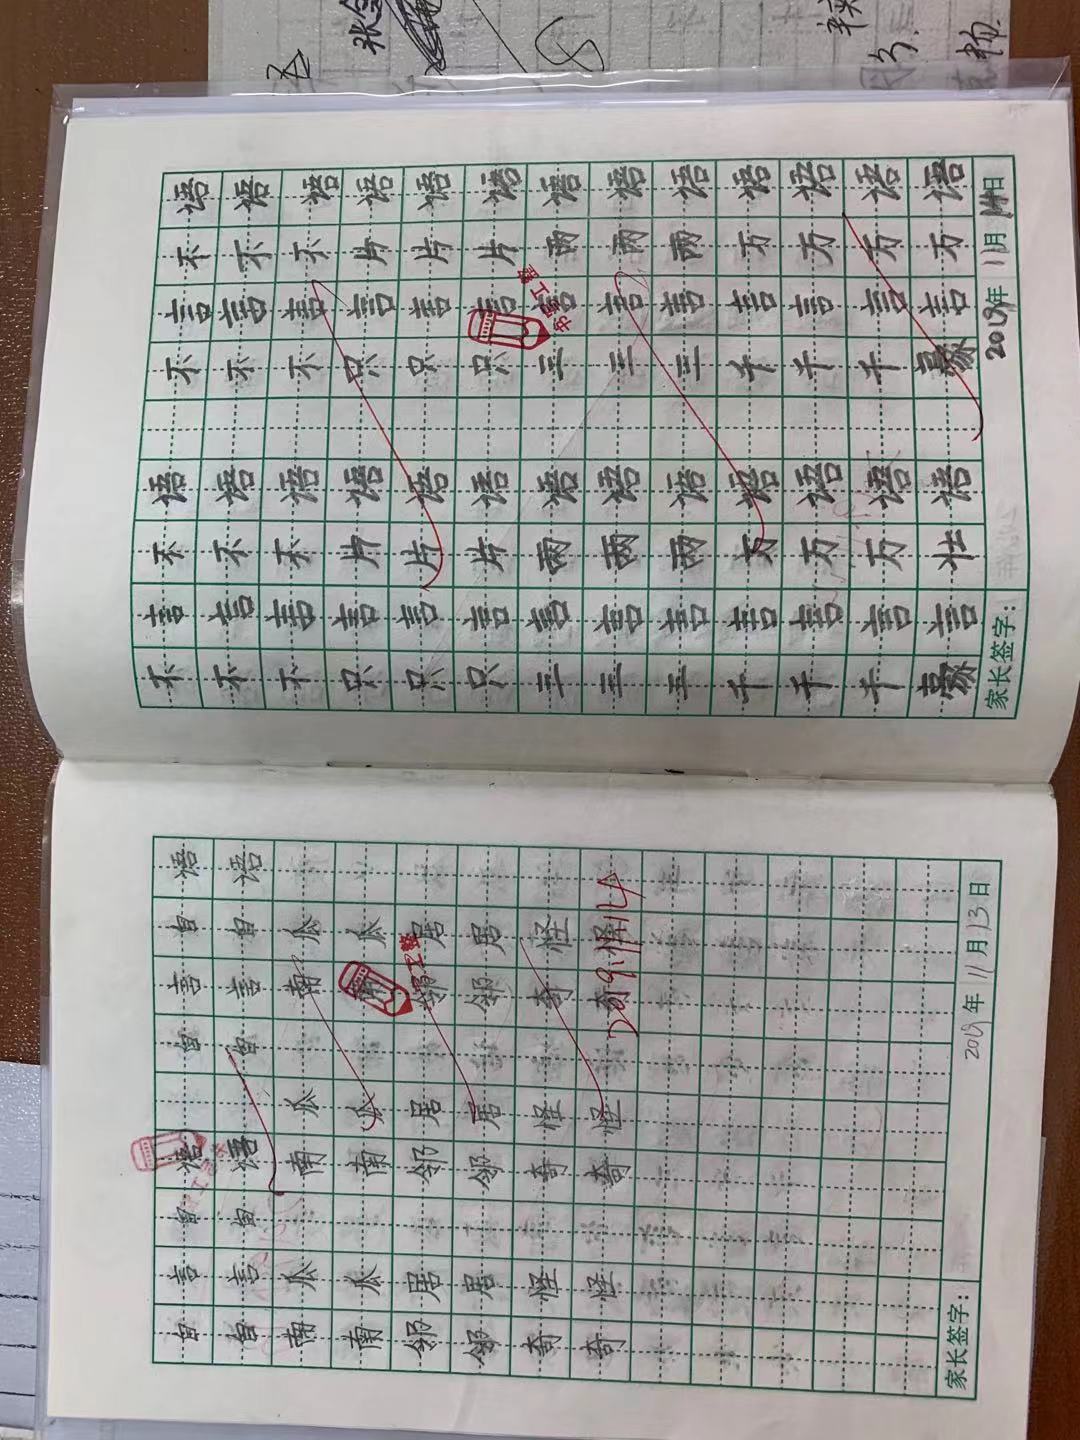 自言自语 自言自语
自言自语 自言自语
南瓜 南瓜 南瓜
南瓜 南瓜 南瓜
邻居 邻居 邻居
邻居 邻居 邻居
奇怪 奇怪 奇怪
奇怪 奇怪 奇怪
2019.11.14
家长签字: 2019年11月13日
书写工整
不言不语 不言不语
不言不语 不言不语
不言不语 不言不语
只言片语 只言片语
只言片语 只言片语
只言片语 只言片语
三言两语 三言两语
三言两语 三言两语
三言两语 三言两语
千言万语 千言万语
千言万语 千言万语
千言万语 千言万语
豪言壮语 豪言万语
家长签字: 2019年11月14日
书写工整